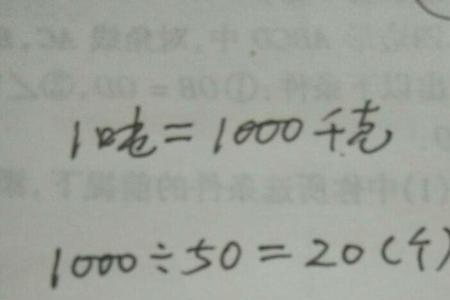 1吨=1000千克
1000÷50=20(个)